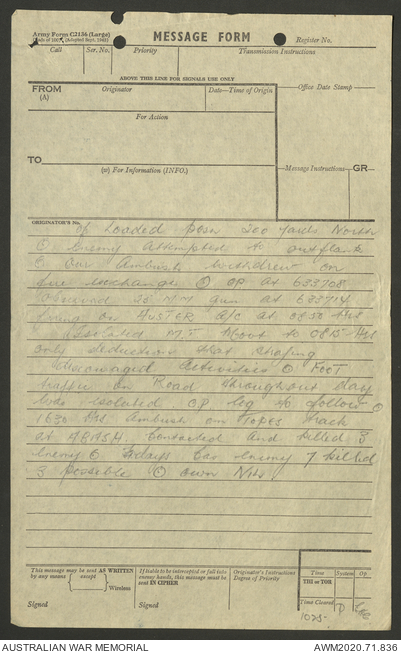 Army Form C2136 (Large)
MESSAGE FORM
Register No.
Call Ser. No. Priority Transmission Instructions
ABOVE THIS LINE FOR SIGNALS USE ONLY
FROM (A) Originator Date-Time of Origin
Office Date Stamp
For Action
TO
(W) For Information (INFO.)
Message Instructions GR
ORIGINATOR'S No.
of Loaded Posn 200 yards North
Enemy attempted to outflank
our Ambush withdrew on
fire exchange OP at 633708
observed 25 MM gun at 633714
firing on AUSTER A/C at 0850 Hrs
Isolated M.T. about to 0815 Hrs
only deduction that
activities Foot
traffic on Road throughout day
was isolated OP log to follow
1630 Hrs Ambush on Track
at contacted and killed 3
enemy enemy 7 killed
3 possible own Nil
This message may be sent AS WRITTEN
by any means { except } Wireless
Signed
If liable to be intercepted or fall into
enemy hands, this message must be
sent IN CIPHER
Signed
Originator's Instructions
Degree of Priority
Time System Op.
THI or TOR
Time Cleared
1025
AUSTRALIAN WAR MEMORIAL AWM2020.71.836